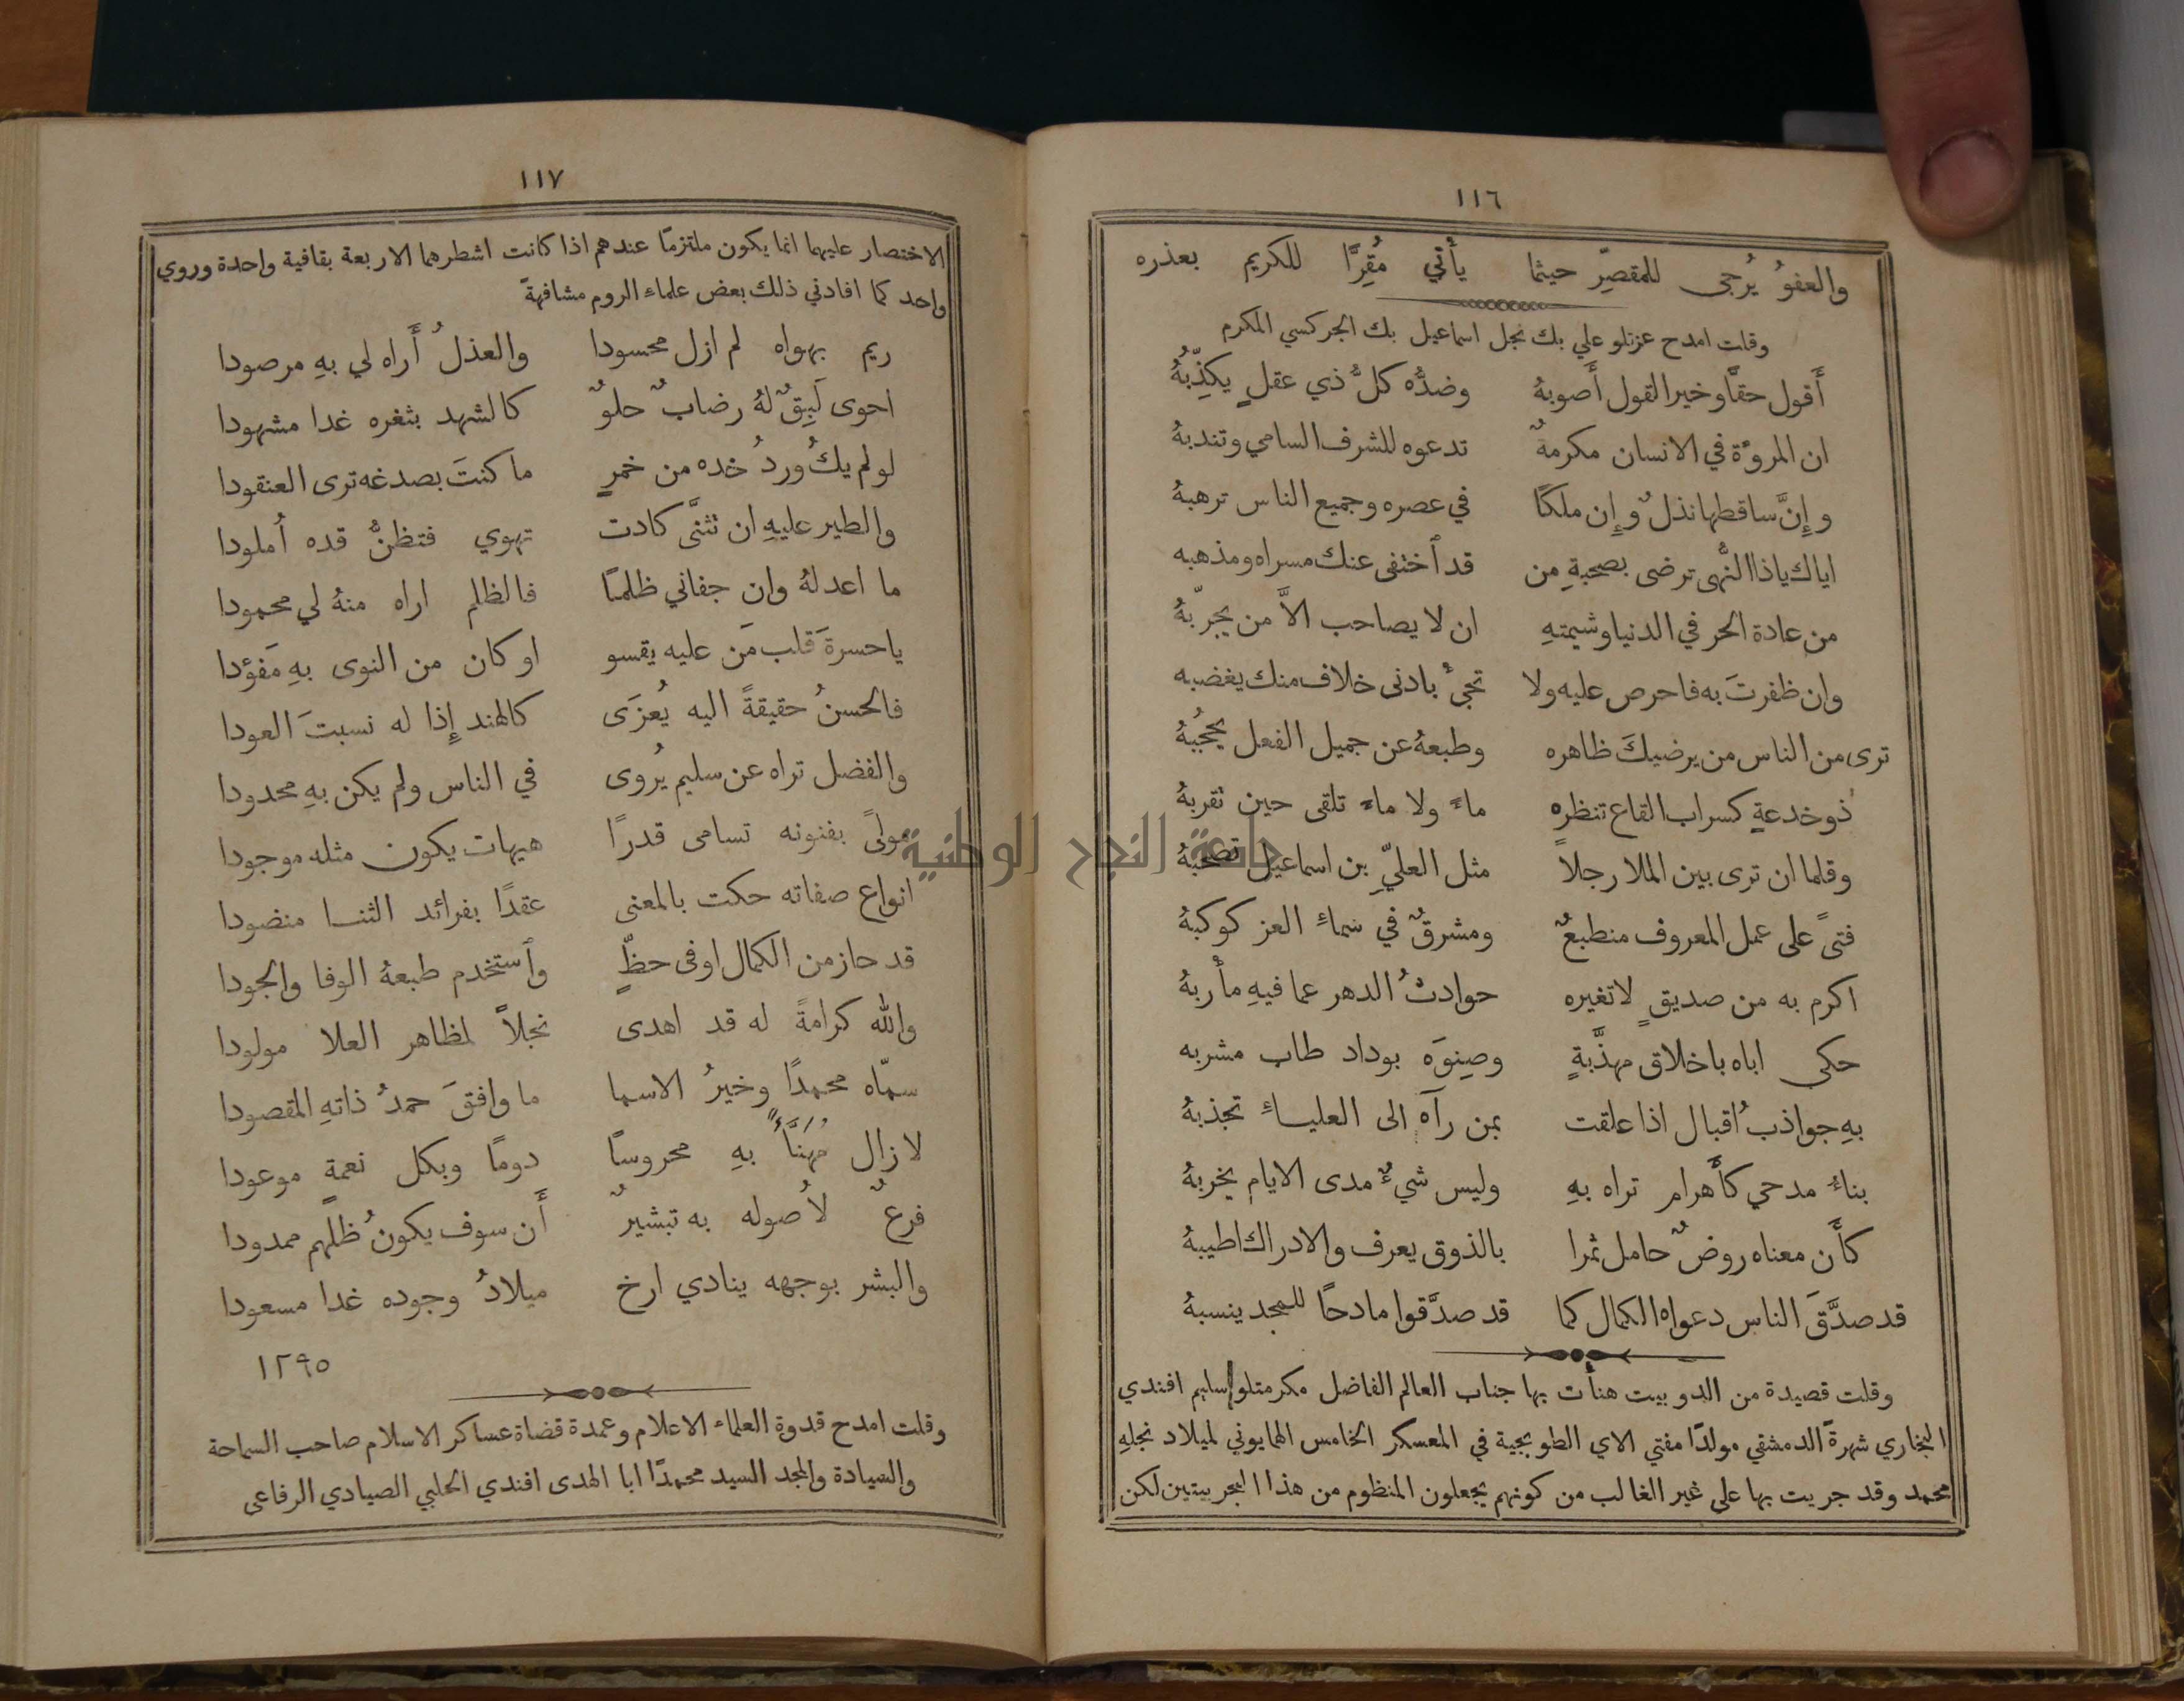 ١١٦
والعفوُ يُرجى للمقصِّر حيثما يأتي مُقِرًّا للكريم بعذره
وقلت امدح عزتلو علي بك نجل اسماعيل بك الجركسي المكرم
أَقول حقًّا وخير القول أَصوبهُ وضدُّه كلُّ ذي عقلٍ يكذِّبُهُ
ان المروءَة في الانسان مكرمةٌ تدعوه للشرف السامي وتندبهُ
وإِنَّ ساقطها نذلٌ وإِن ملكًا في عصره وجميع الناس ترهبهُ
اياك ياذا النُّهى ترضى بصحبةِ من قد أختفى عنك مسراه ومذهبه
من عادة الحر في الدنيا وشيمتهِ ان لا يصاحب الاَّ من يجرّبهُ
وان ظفرتَ به فاحرص عليه ولا تجئْ بادنى خلاف منك يغضبه
ترى من الناس من يرضيكَ ظاهره وطبعهُ عن جميل الفعل يحجُبُهُ
ذو خدعةٍ كسراب القاع تنظره ماءً ولا ماءَ تلقى حين تقربهُ
وقلما ان ترى بين الملا رجلاً مثل العليِّ بن اسماعيل تصحبهُ
فتىً على عمل المعروف منطبعٌ ومشرقٌ في سماءِ العز كوكبهُ
اكرم به من صديقٍ لا تغيره حوادثُ الدهر عما فيهِ مأربهُ
حكى اباه باخلاق مهذَّبةٍ وصِنوَه بوداد طاب مشربه
بهِ جواذبُ اقبال اذا علقت بمن رآه الى العلياءِ تجذبهُ
بناءُ مدحي كأَهرام تراه بهِ وليس شيءٌ مدى الايام يخربهُ
كأَن معناه روضٌ حامل ثمرا بالذوق يعرف والادراك اطيبهُ
قد صدَّقَ الناس دعواه الكمال كما قد صدَّقوا مادحًا للمجد ينسبهُ
وقلت قصيدة من الدو بيت هنأت بها جناب العالم الفاضل مكرمتلو سليم افندي
البخاري شهرةً الدمشقي مولدًا مفتي الاي الطوبجية في المعسكر الخامس الهايوني لميلاد نجلهِ
محمد وقد جريت بها على غير الغالب من كونهم يجعلون المنظوم من هذا البحر بيتين لكن
١١٧
الاختصار عليهما انما يكون ملتزمًا عندهم اذا كانت اشطرهما الاربعة بقافية واحدة وروي
واحد كما افادني ذلك بعض علماء الروم مشافهةً
ريم بهواه لم ازل محسودا والعذلُ أَراه لي بهِ مرصودا
احوى لَبِقٌ لهُ رضابٌ حلوٌ كالشهد بثغره غدا مشهودا
لو لم يكُ وردُ خده من خمرٍ ما كنتَ بصدغه ترى العنقودا
والطير عليهِ ان تثنَّى كادت تهوي فتظنُّ قده أُملودا
ما اعدلهُ وان جفاني ظلمًا فالظلم اراه منهُ لي محمودا
ياحسرةَ قلب مَن عليه يقسو او كان من النوى بهِ مَفؤدا
فالحسنُ حقيقةً اليه يُعزَى كالهند إِذا له نسبتَ العودا
والفضل تراه عن سليم يُروى في الناس ولم يكن بهِ محدودا
مولىً بفنونه تسامى قدرًا هيهات يكون مثله موجودا
انواع صفاته حكت بالمعنى عقدًا بفرائد الثنا منضودا
قد حاز من الكمال اوفى حظٍّ وأستخدم طبعهُ الوفا والجودا
والله كرامةً له قد اهدى نجلاً لمظاهر العلا مولودا
سمّاه محمدًا وخيرُ الاسما ما وافقَ حمدُ ذاتهِ المقصودا
لا زال مُهَنَّأً بهِ محروسًا دومًا وبكل نعمةٍ موعودا
فرعٌ لأُصوله به تبشيرٌ أَن سوف يكونُ ظلُّهم ممدودا
والبشر بوجهه ينادي ارخ ميلادُ وجوده غدا مسعودا
١٢٩٥
وقلت امدح قدوة العلماء الاعلام وعمدة قضاة عساكر الاسلام صاحب السماحة
والسيادة والمجد السيد محمدًا ابا الهدى افندي الحلبي الصيادي الرفاعي
جامعة النجاح الوطنية